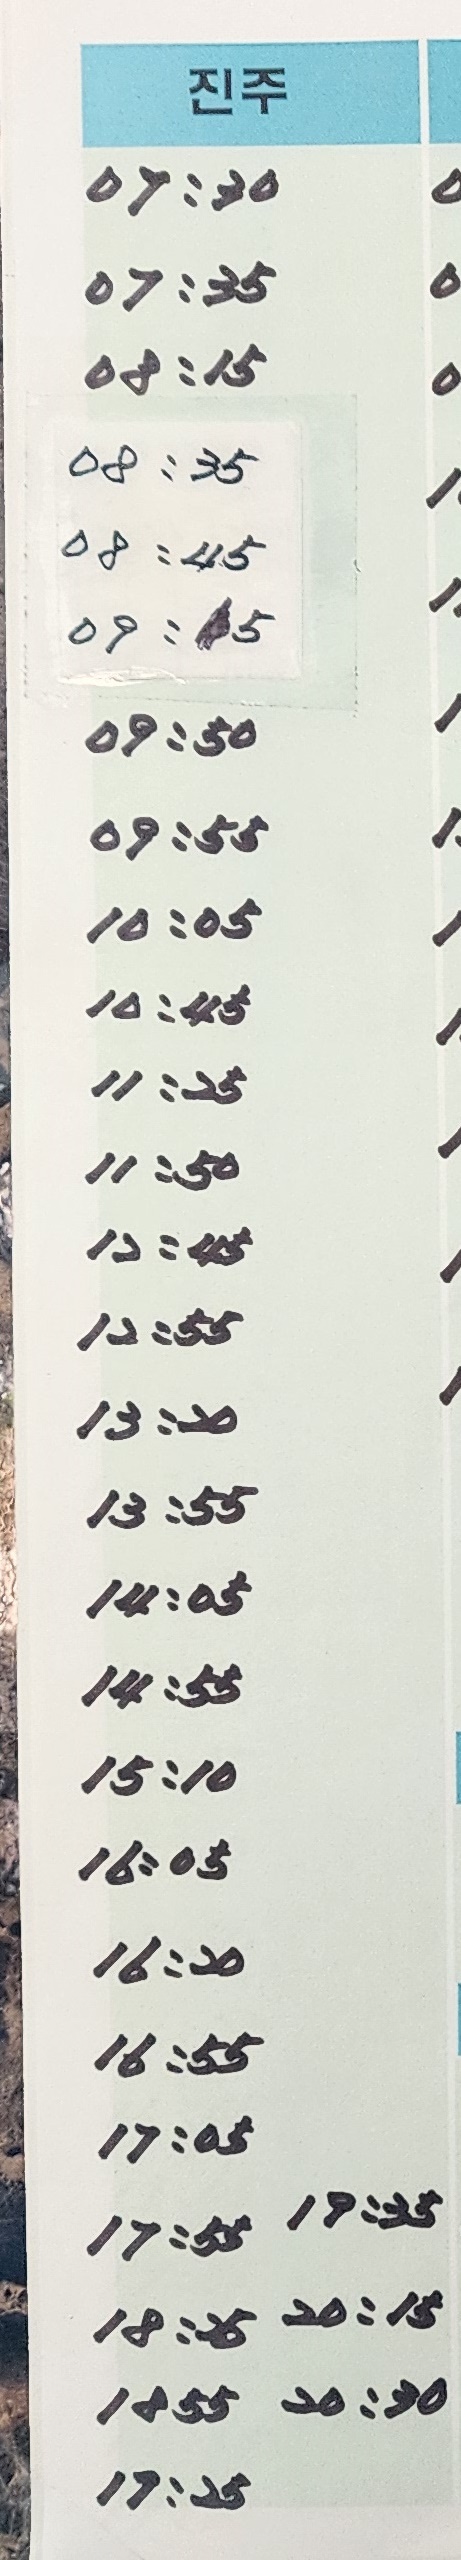 진주
07:30
07:35
08:15
08:35
08:45
09:15
09:50
09:55
10:05
10:45
11:25
11:50
12:45
12:55
13:20
13:55
14:05
14:55
15:10
16:05
16:20
16:55
17:05
17:55
18:25
1855
19:25
19:35
20:15
20:30